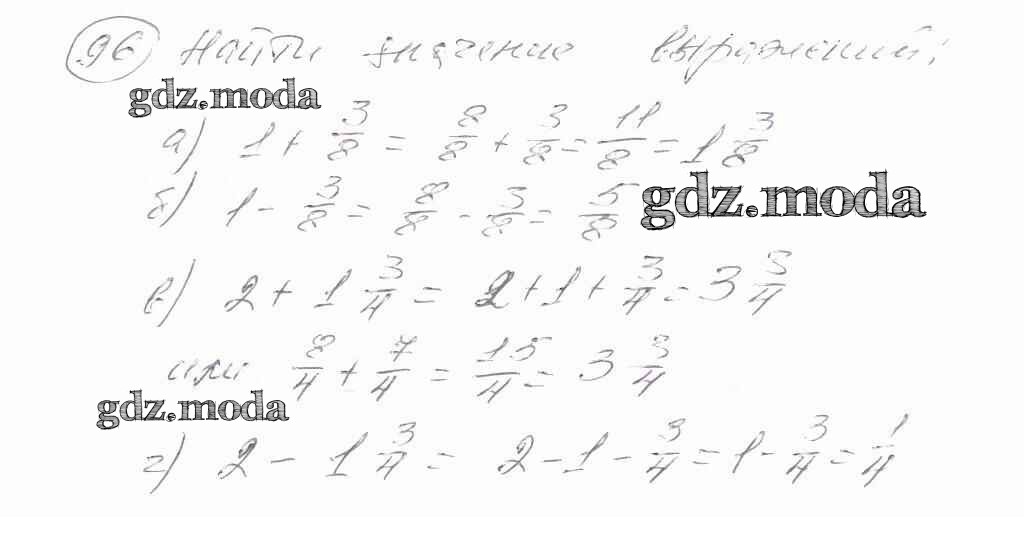 96 Найти значение выражений:
gdz.moda
а) 1 + 3/8 = 8/8 + 3/8 = 11/8 = 1 3/8
б) 1 - 3/8 = 8/8 - 3/8 = 5/8
gdz.moda
в) 2 + 1 3/4 = 2 + 1 + 3/4 = 3 3/4
или 8/4 + 7/4 = 15/4 = 3 3/4
gdz.moda
г) 2 - 1 3/4 = 2 - 1 - 3/4 = 1 - 3/4 = 1/4